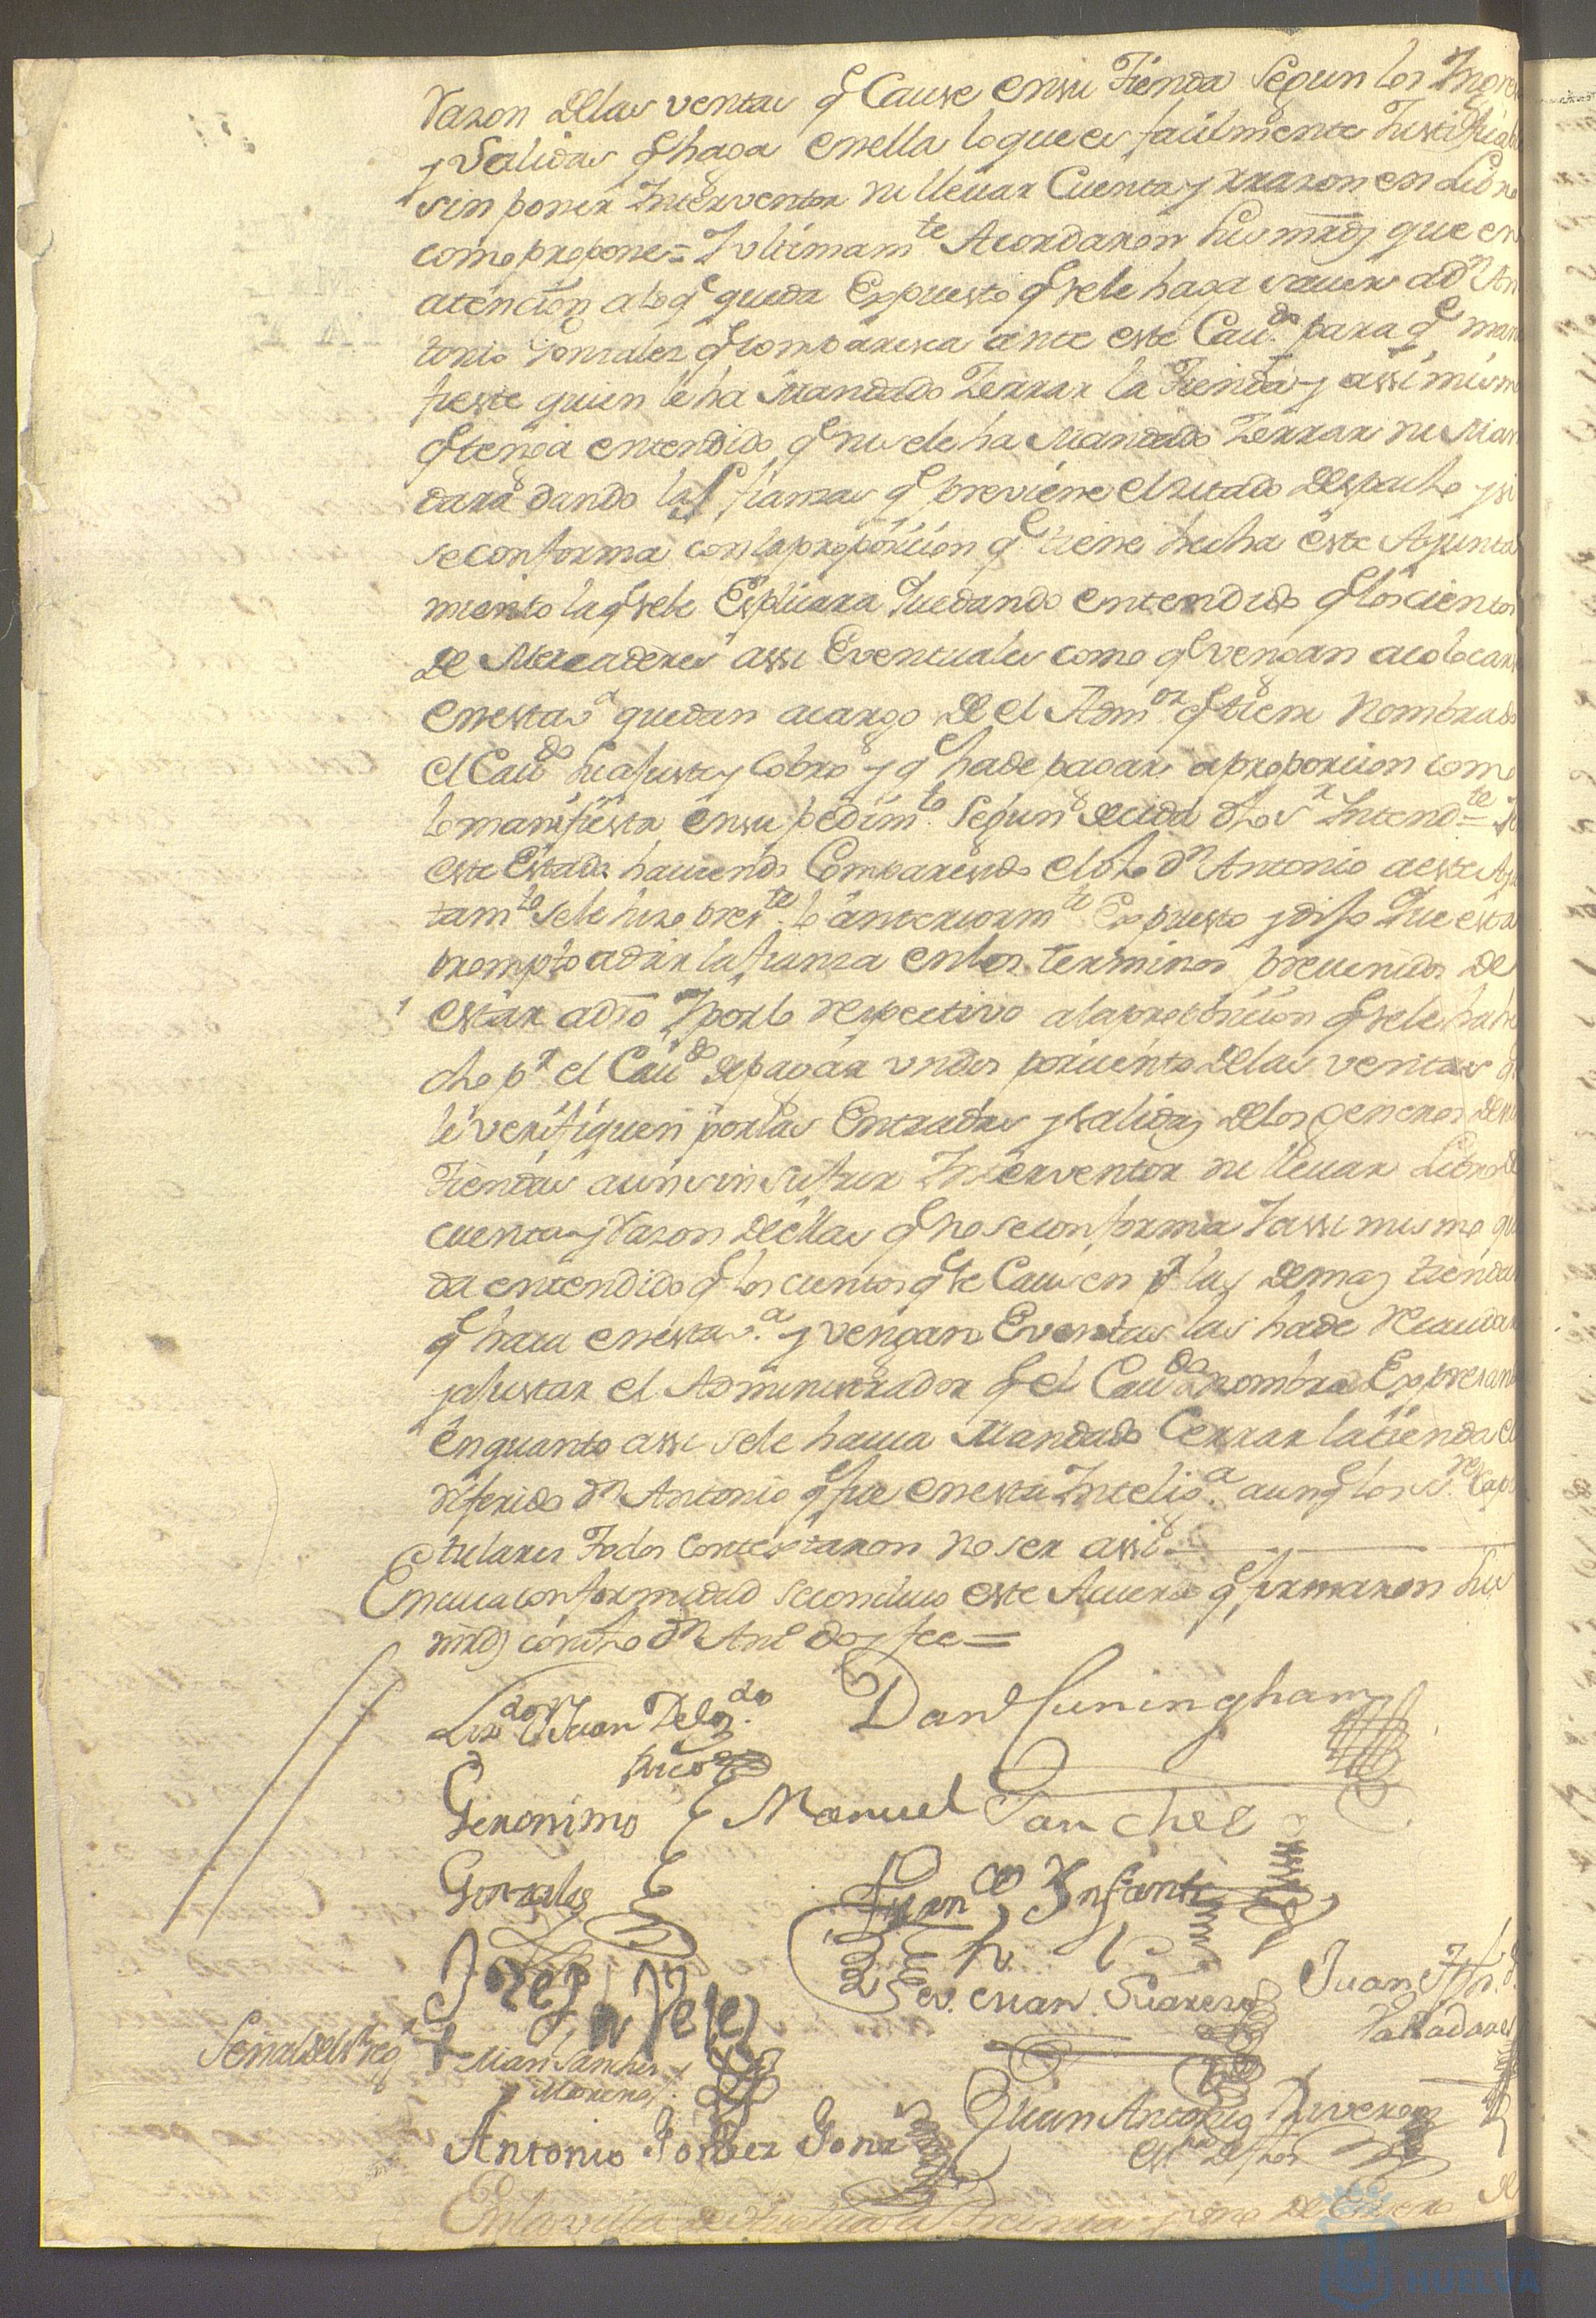 razon de las ventas q^e Cause en su Tienda Segun los Ingres
y Salidas q^e haga en ella lo que es facilmente Justificab
sin poner Interventor ni lleuar Cuenta y rrazon en Libro
como propone = Y ultimam^te Acordaron sus mrds que en
atencion a lo q^e queda Expuesto q^e se le haga sauer a D^n An
tonio Gonzales q^e comparesca ante este Cau^do para q^e mani
fieste quien le ha Mandado Zerrar la Tienda y assi mism
q^e tenga entendido q^e no se le ha Mandado Zerrar ni Man
dara dando las fianzas q^e previene el zitado Despacho y si
se conforma con la proposicion q^e tiene hecha este Ayunta
miento la q^e se le Esplicara Quedando entendido q^e los cientos
de Mercaderes assi Eventuales como q^e vengan a colocarse
en esta v^a quedan a cargo de el Adm^or q^e tiene Nombrado
el Cau^do su ajuste y Cobro y q^e ha de pagar a proporcion como
lo manifiesta en su pedim^to Segun decida dho s^r Intend^te = Y
este Estado hauiendo Comparesido el dho D^n Antonio a este Ayu
tam^to se le hizo pres^te lo anteriorm^te Expuesto y dijo Que esta
prompto a dar la fianza en los terminos preuenidos de
estar a dro Y por lo respectivo a la proposicion q^e se le ha he
cho p^r el Cau^do de pagar un dos por ciento de las ventas q^e
le verifiquen por las Entradas y salidas de los generos de su
Tiendas aun sin sufrir Interventor ni lleuar Libro de
cuenta y razon de ellas q^e no se conforma Y assi mismo que
da entendido q^e los cientos q^e se Causen p^r las demas tiendas
q^e haia en esta v^a y vengan Eventuas las ha de recaudar
y ajustar el Administrador q^e el Cau^do nombra Expresan
en quanto assi se le hauia Mandado Cerrar la tienda el
referido D^n Antonio q^e fue en esta Intelig^a aunq^e los s^res Capi
tulares Todos Contestaron no ser assi
En cuia conformidad se concluio este Acuerdo q^e firmaron sus
mrds con dho D^n Ant^o doy fee =
Liz^do D^n Juan Delg^do
Rico
Dan^l Cuningham
Geronimo
Gonzales
Manuel Sanchez
Fran^co Ynfante
Jrez Velez
Estevan Suarez
Juan
Valladares
Señal del s^r reg^r
+ Mían Sanches
y Moreno
Antonio Gonz
Juan Antonio Riveron
esc^no
En la villa de Huelua a treinta y uno de Enero de
HUELVA